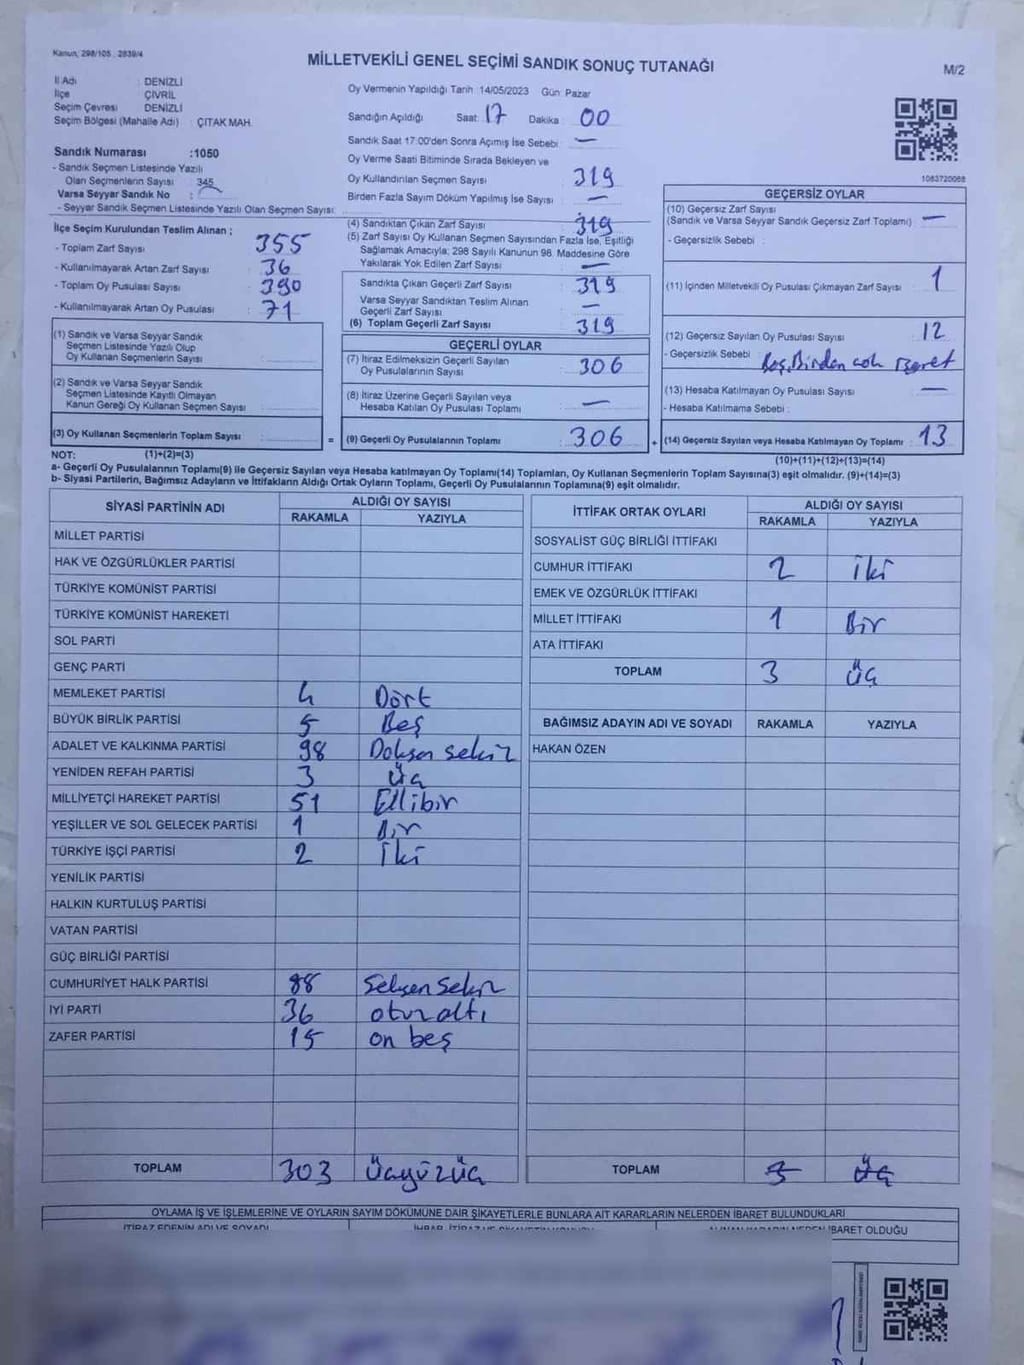 Kanun, 298/105 , 2839/4
MİLLETVEKİLİ GENEL SEÇİMİ SANDIK SONUÇ TUTANAĞI
M/2
İl Adı : DENİZLİ
İlçe : ÇİVRİL
Seçim Çevresi : DENİZLİ
Seçim Bölgesi (Mahalle Adı) : ÇITAK MAH.
Sandık Numarası :1050
- Sandık Seçmen Listesinde Yazılı
Olan Seçmenlerin Sayısı : 345
Varsa Seyyar Sandık No :
- Seyyar Sandık Seçmen Listesinde Yazılı Olan Seçmen Sayısı:
İlçe Seçim Kurulundan Teslim Alınan ;
- Toplam Zarf Sayısı : 355
- Kullanılmayarak Artan Zarf Sayısı : 36
- Toplam Oy Pusulası Sayısı : 390
- Kullanılmayarak Artan Oy Pusulası : 71
(1) Sandık ve Varsa Seyyar Sandık
Seçmen Listesinde Yazılı Olup
Oy Kullanan Seçmenlerin Sayısı :
(2) Sandık ve Varsa Seyyar Sandık
Seçmen Listesinde Kayıtlı Olmayan
Kanun Gereği Oy Kullanan Seçmen Sayısı :
(3) Oy Kullanan Seçmenlerin Toplam Sayısı :
(1)+(2)=(3)
Oy Vermenin Yapıldığı Tarih :14/05/2023 Gün: Pazar
Sandığın Açıldığı Saat: 17 Dakika : 00
Sandık Saat 17:00'den Sonra Açımış İse Sebebi : —
Oy Verme Saati Bitiminde Sırada Bekleyen ve
Oy Kullandırılan Seçmen Sayısı : 319
Birden Fazla Sayım Döküm Yapılmış İse Sayısı : —
(4) Sandıktan Çıkan Zarf Sayısı : 319
(5) Zarf Sayısı Oy Kullanan Seçmen Sayısından Fazla İse, Eşitliği
Sağlamak Amacıyla; 298 Sayılı Kanunun 98. Maddesine Göre
Yakılarak Yok Edilen Zarf Sayısı : —
Sandıkta Çıkan Geçerli Zarf Sayısı : 319
Varsa Seyyar Sandıktan Teslim Alınan
Geçerli Zarf Sayısı : —
(6) Toplam Geçerli Zarf Sayısı : 319
GEÇERLİ OYLAR
(7) İtiraz Edilmeksizin Geçerli Sayılan
Oy Pusulalarının Sayısı : 306
(8) İtiraz Üzerine Geçerli Sayılan veya
Hesaba Katılan Oy Pusulası Toplamı : —
= (9) Geçerli Oy Pusulalarının Toplamı : 306
1083720068
GEÇERSİZ OYLAR
(10) Geçersiz Zarf Sayısı
(Sandık ve Varsa Seyyar Sandık Geçersiz Zarf Toplamı) : —
- Geçersizlik Sebebi :
(11) İçinden Milletvekili Oy Pusulası Çıkmayan Zarf Sayısı : 1
(12) Geçersiz Sayılan Oy Pusulası Sayısı : 12
- Geçersizlik Sebebi : Boş, Birden cok işaret
(13) Hesaba Katılmayan Oy Pusulası Sayısı : —
- Hesaba Katılmama Sebebi :
+ (14) Geçersiz Sayılan veya Hesaba Katılmayan Oy Toplamı : 13
(10)+(11)+(12)+(13)=(14)
NOT:
a- Geçerli Oy Pusulalarının Toplamı(9) ile Geçersiz Sayılan veya Hesaba katılmayan Oy Toplamı(14) Toplamları, Oy Kullanan Seçmenlerin Toplam Sayısına(3) eşit olmalıdır. (9)+(14)=(3)
b- Siyasi Partilerin, Bağımsız Adayların ve İttifakların Aldığı Ortak Oyların Toplamı, Geçerli Oy Pusulalarının Toplamına(9) eşit olmalıdır.
SİYASİ PARTİNİN ADI ALDIĞI OY SAYISI
RAKAMLA YAZIYLA
MİLLET PARTİSİ
HAK VE ÖZGÜRLÜKLER PARTİSİ
TÜRKİYE KOMÜNİST PARTİSİ
TÜRKİYE KOMÜNİST HAREKETİ
SOL PARTİ
GENÇ PARTİ
MEMLEKET PARTİSİ 4 Dört
BÜYÜK BİRLİK PARTİSİ 5 Beş
ADALET VE KALKINMA PARTİSİ 98 Doksan sekiz
YENİDEN REFAH PARTİSİ 3 Üç
MİLLİYETÇİ HAREKET PARTİSİ 51 Ellibir
YEŞİLLER VE SOL GELECEK PARTİSİ 1 Bir
TÜRKİYE İŞÇİ PARTİSİ 2 İki
YENİLİK PARTİSİ
HALKIN KURTULUŞ PARTİSİ
VATAN PARTİSİ
GÜÇ BİRLİĞİ PARTİSİ
CUMHURİYET HALK PARTİSİ 88 Seksen Sekiz
İYİ PARTİ 36 otuz altı
ZAFER PARTİSİ 15 on beş
TOPLAM 303 Üçyüzüç
İTTİFAK ORTAK OYLARI ALDIĞI OY SAYISI
RAKAMLA YAZIYLA
SOSYALİST GÜÇ BİRLİĞİ İTTİFAKI
CUMHUR İTTİFAKI 2 iki
EMEK VE ÖZGÜRLÜK İTTİFAKI
MİLLET İTTİFAKI 1 Bir
ATA İTTİFAKI
TOPLAM 3 üç
BAĞIMSIZ ADAYIN ADI VE SOYADI RAKAMLA YAZIYLA
HAKAN ÖZEN
TOPLAM 3 üç
OYLAMA İŞ VE İŞLEMLERİNE VE OYLARIN SAYIM DÖKÜMÜNE DAİR ŞİKAYETLERLE BUNLARA AİT KARARLARIN NELERDEN İBARET BULUNDUKLARI
İTİRAZ EDENİN ADI VE SOYADI
İBARET OLDUĞU